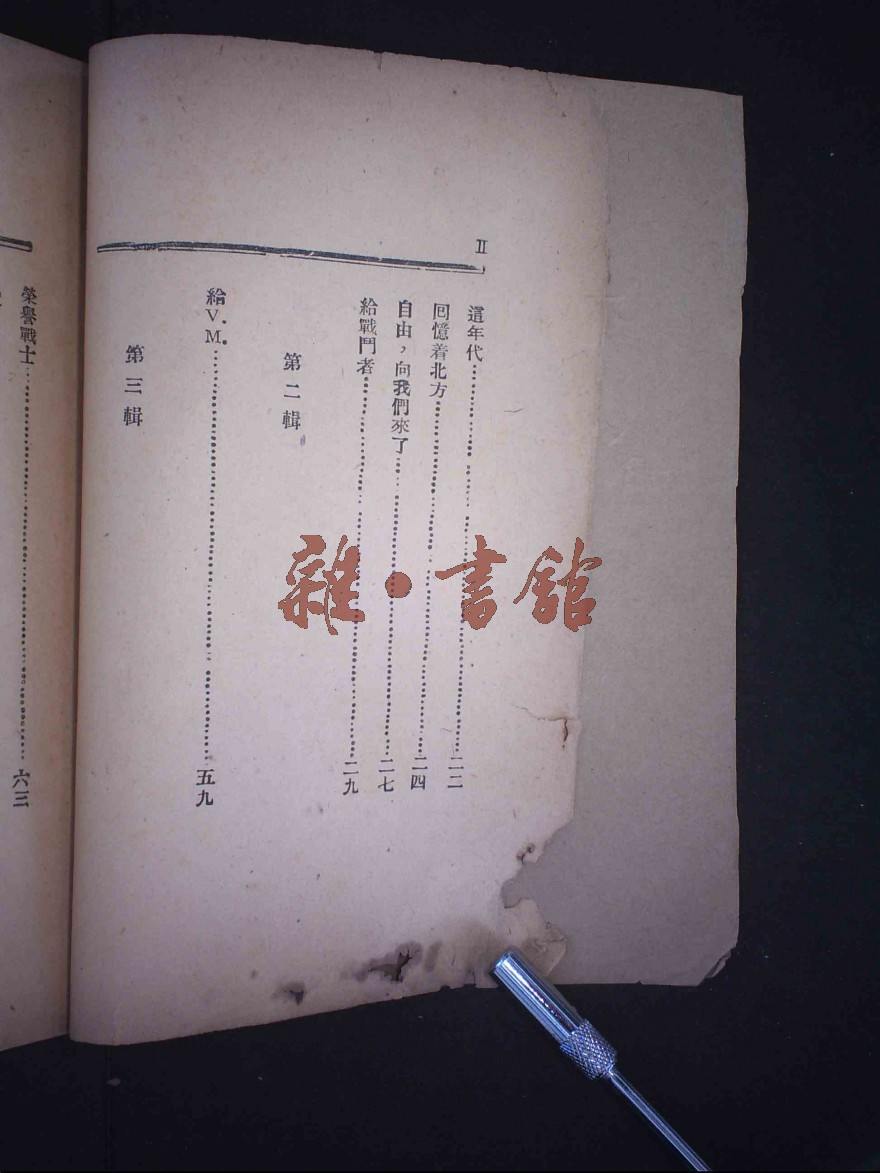 II
這年代……二二
回憶着北方……二四
自由，向我們來了……二七
給戰鬥者……二九
第二輯
給V.M.……五九
第三輯
榮譽戰士……六三
雜·書館